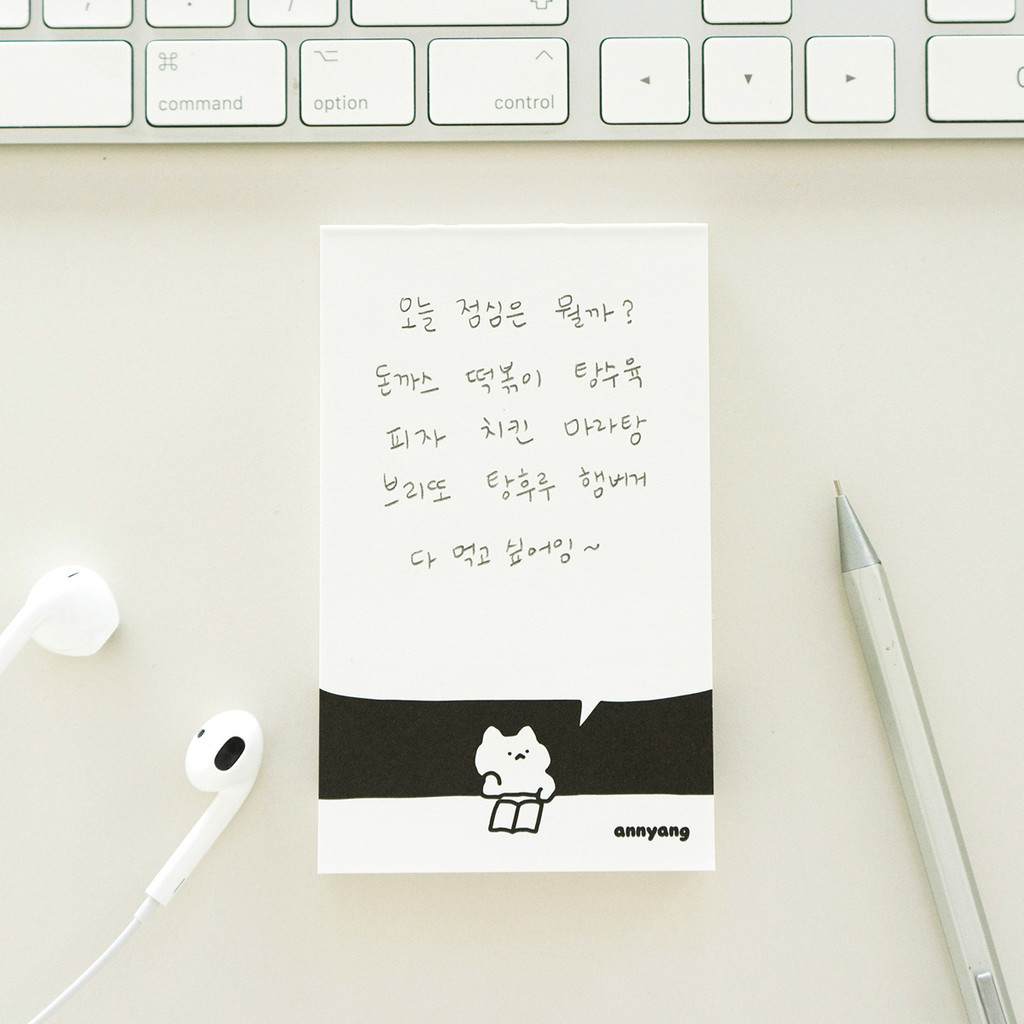 command
option
control
오늘 점심은 뭘까?
돈까스 떡볶이 탕수육
피자 치킨 마라탕
브리또 탕후루 햄버거
다 먹고 싶어잉~
annyang